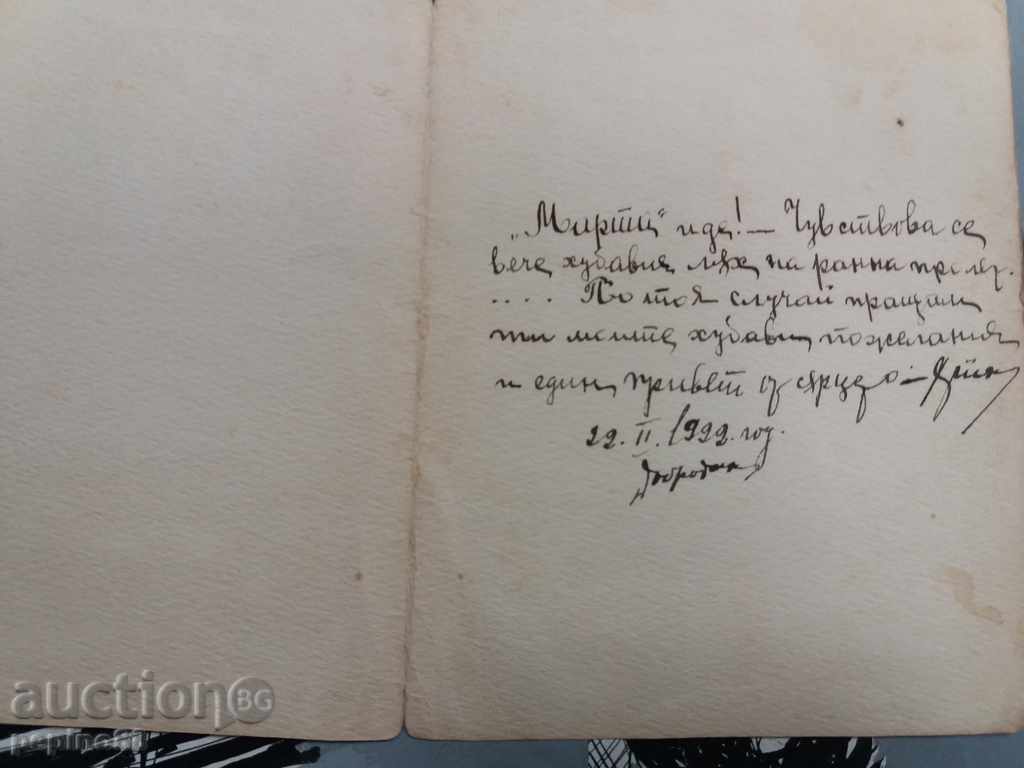 „Мартъ“ иде! — Чувствова се
вече хубавия лъх на ранна пролет.
.... По тоя случай пращам
ти моите хубави пожелания
и един привет от сърце —
22. II. 1922. год.
auction BG
pepino61